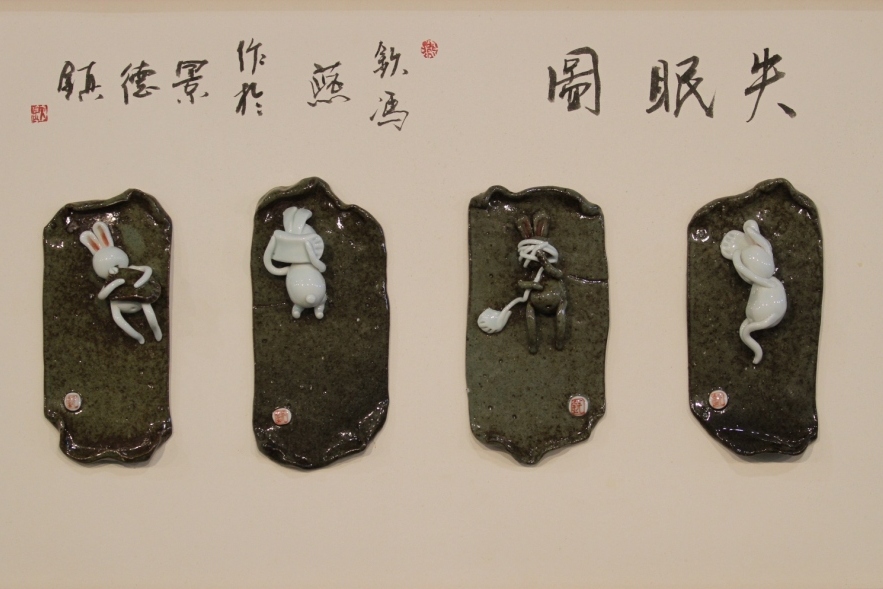 失眠圖
欽馮燕作於景德鎮